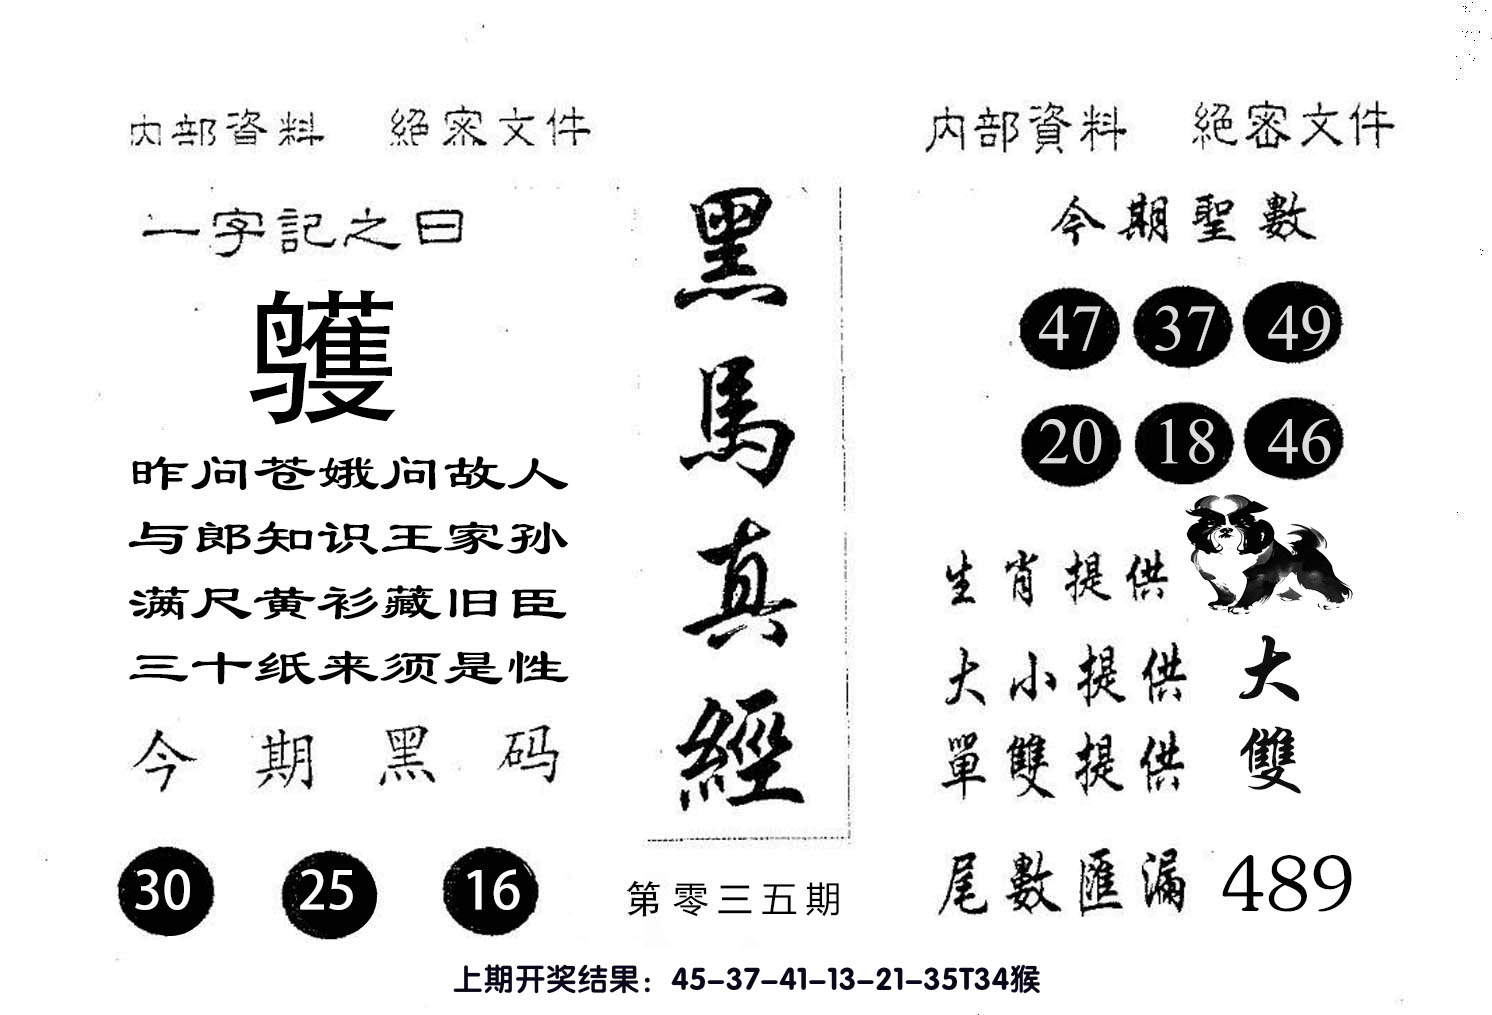 内部資料 絕密文件
一字記之曰
彠
昨问苍娥问故人
与郎知识王家孙
满尺黄衫藏旧臣
三十纸来须是性
今期黑码
30 25 16
黑馬真經
第零三五期
内部資料 絕密文件
今期聖數
47 37 49
20 18 46
生肖提供
大小提供 大
單雙提供 雙
尾數匯漏 489
上期开奖结果：45-37-41-13-21-35T34猴